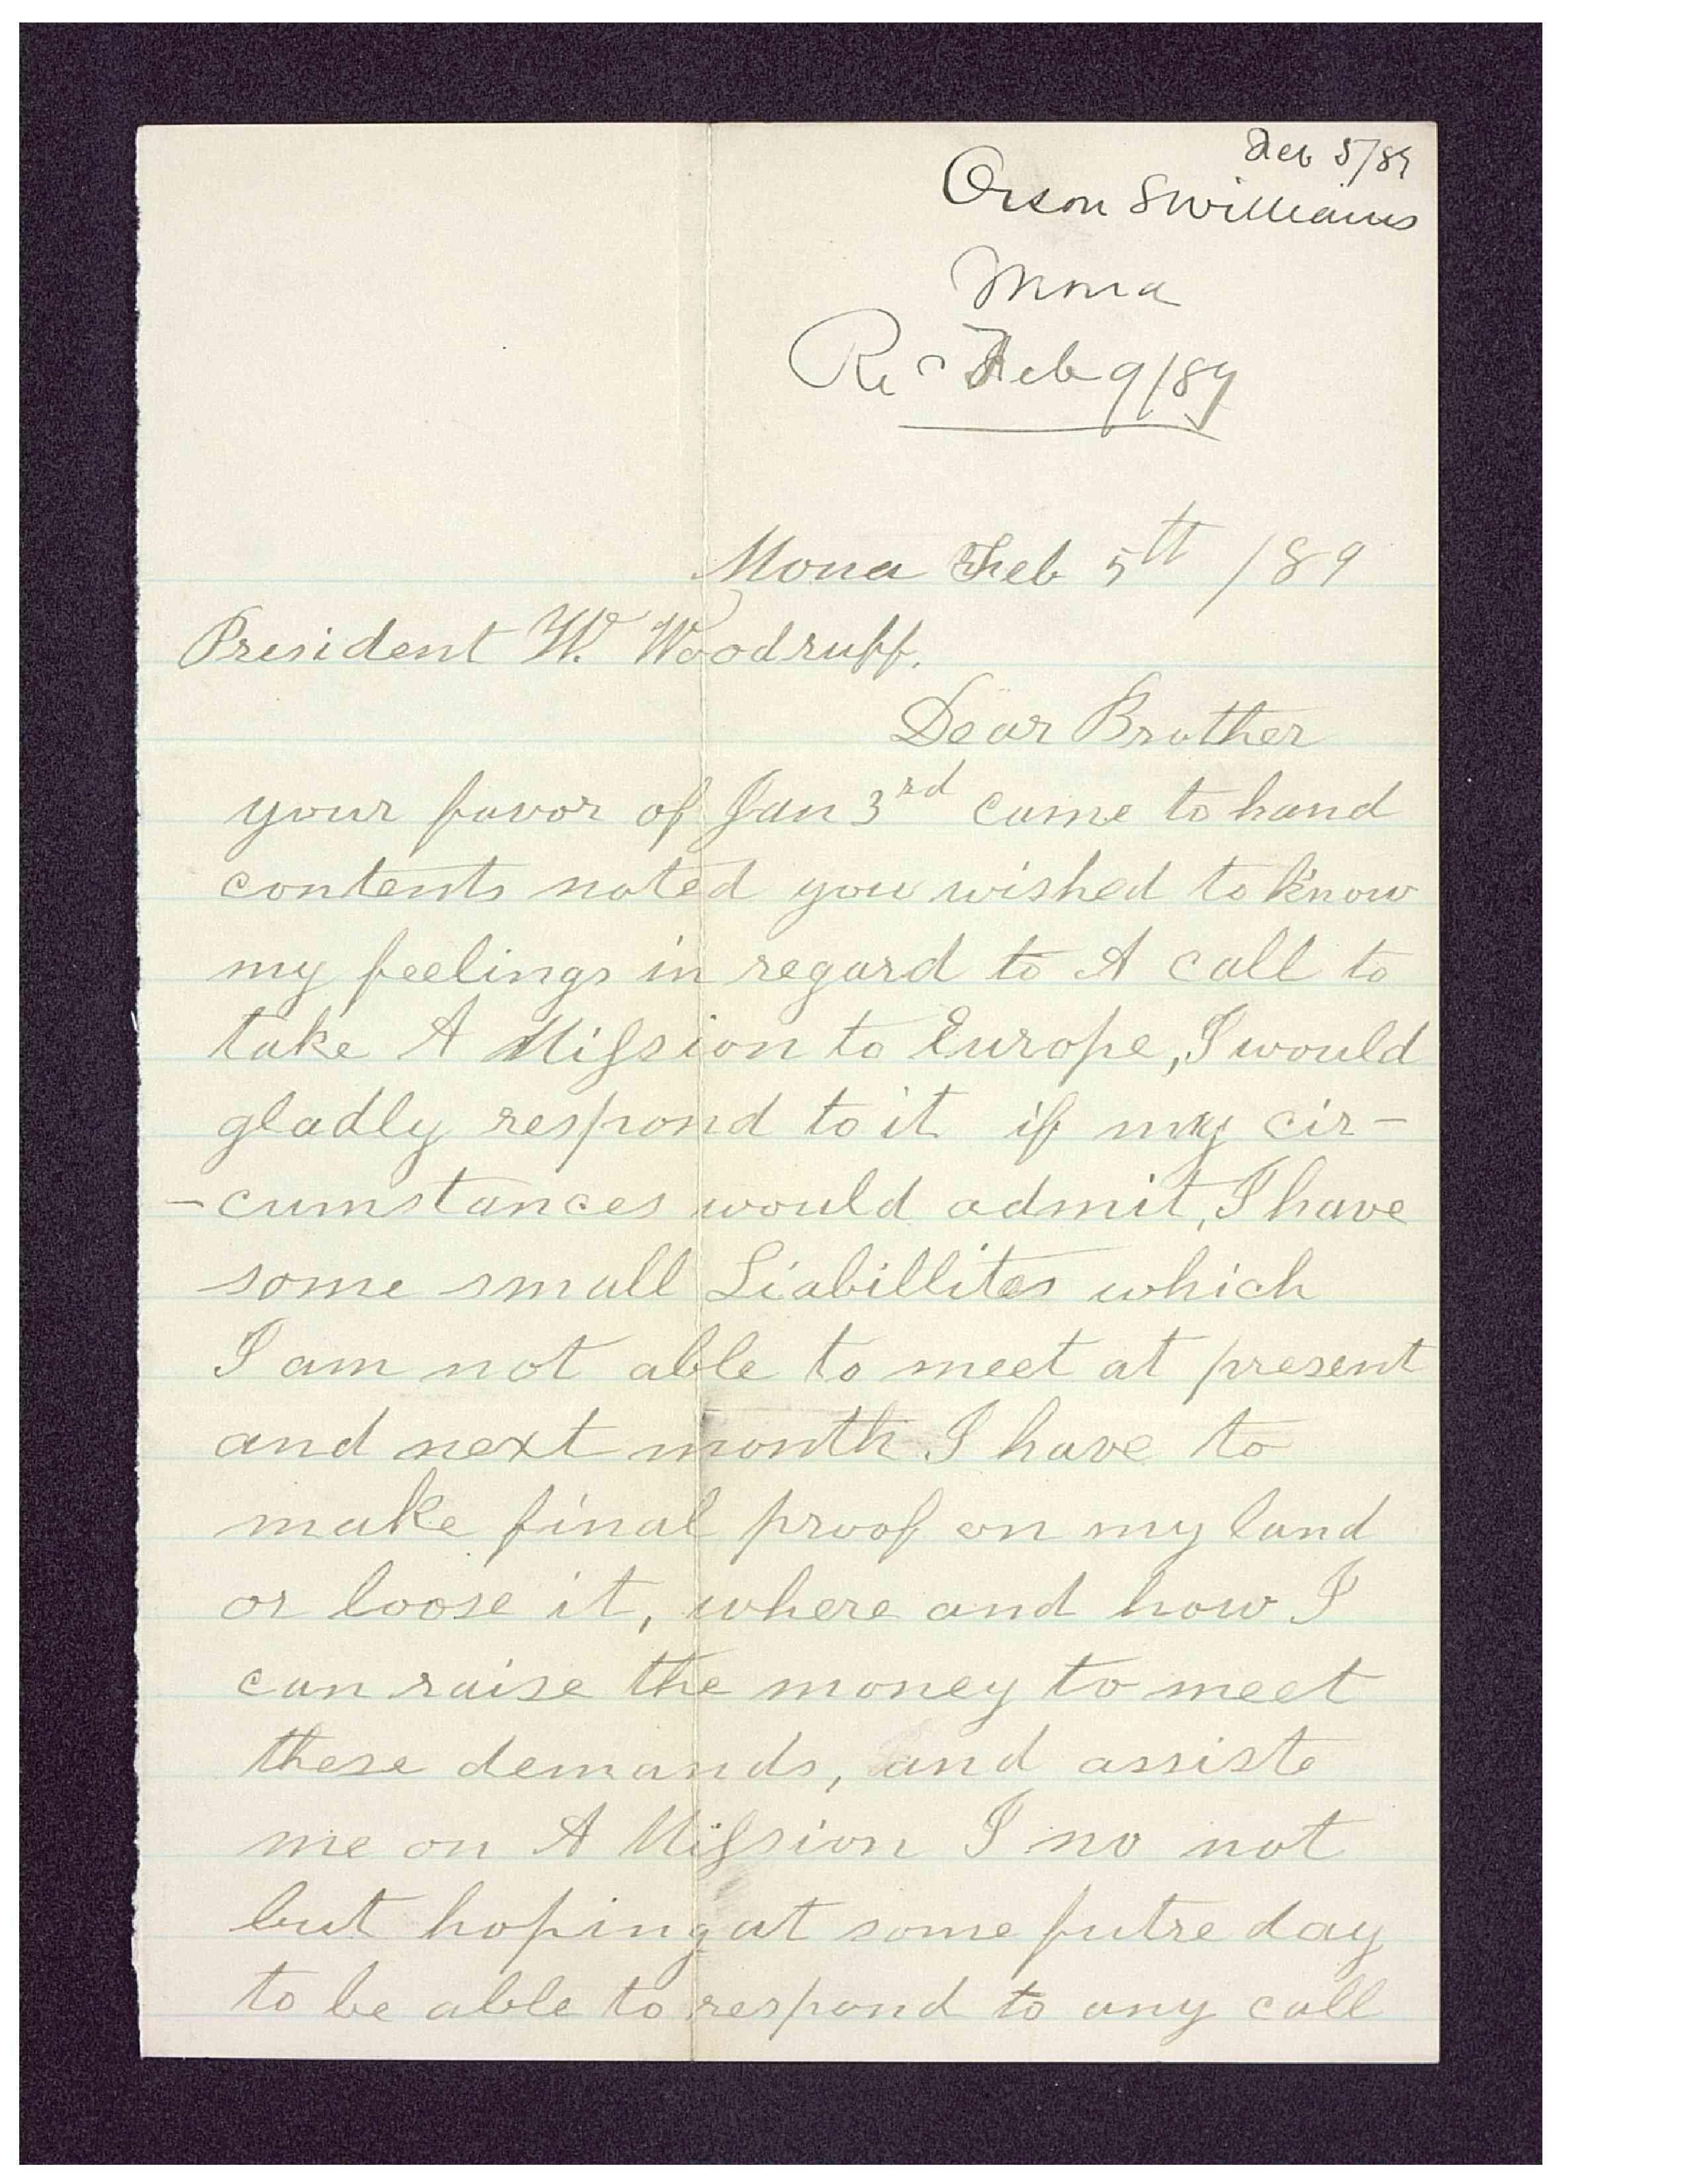 Feb 5/89
Orson S Williams
Mona
Rec Feb 9/89
Mona Feb 5th /89
President W. Woodruff.
Dear Brother
your favor of Jan 3rd came to hand
contents noted you wished to know
my feelings in regard to A call to
take A Mission to Europe, I would
gladly respond to it if my cir-
-cumstances would admit, I have
some small Liabillites which
I am not able to meet at present
and next month I have to
make final proof on my land
or loose it, where and how I
can raise the money to meet
these demands, and assiste
me on A Mission I no not
but hoping at some futre day
to be able to respond to any call